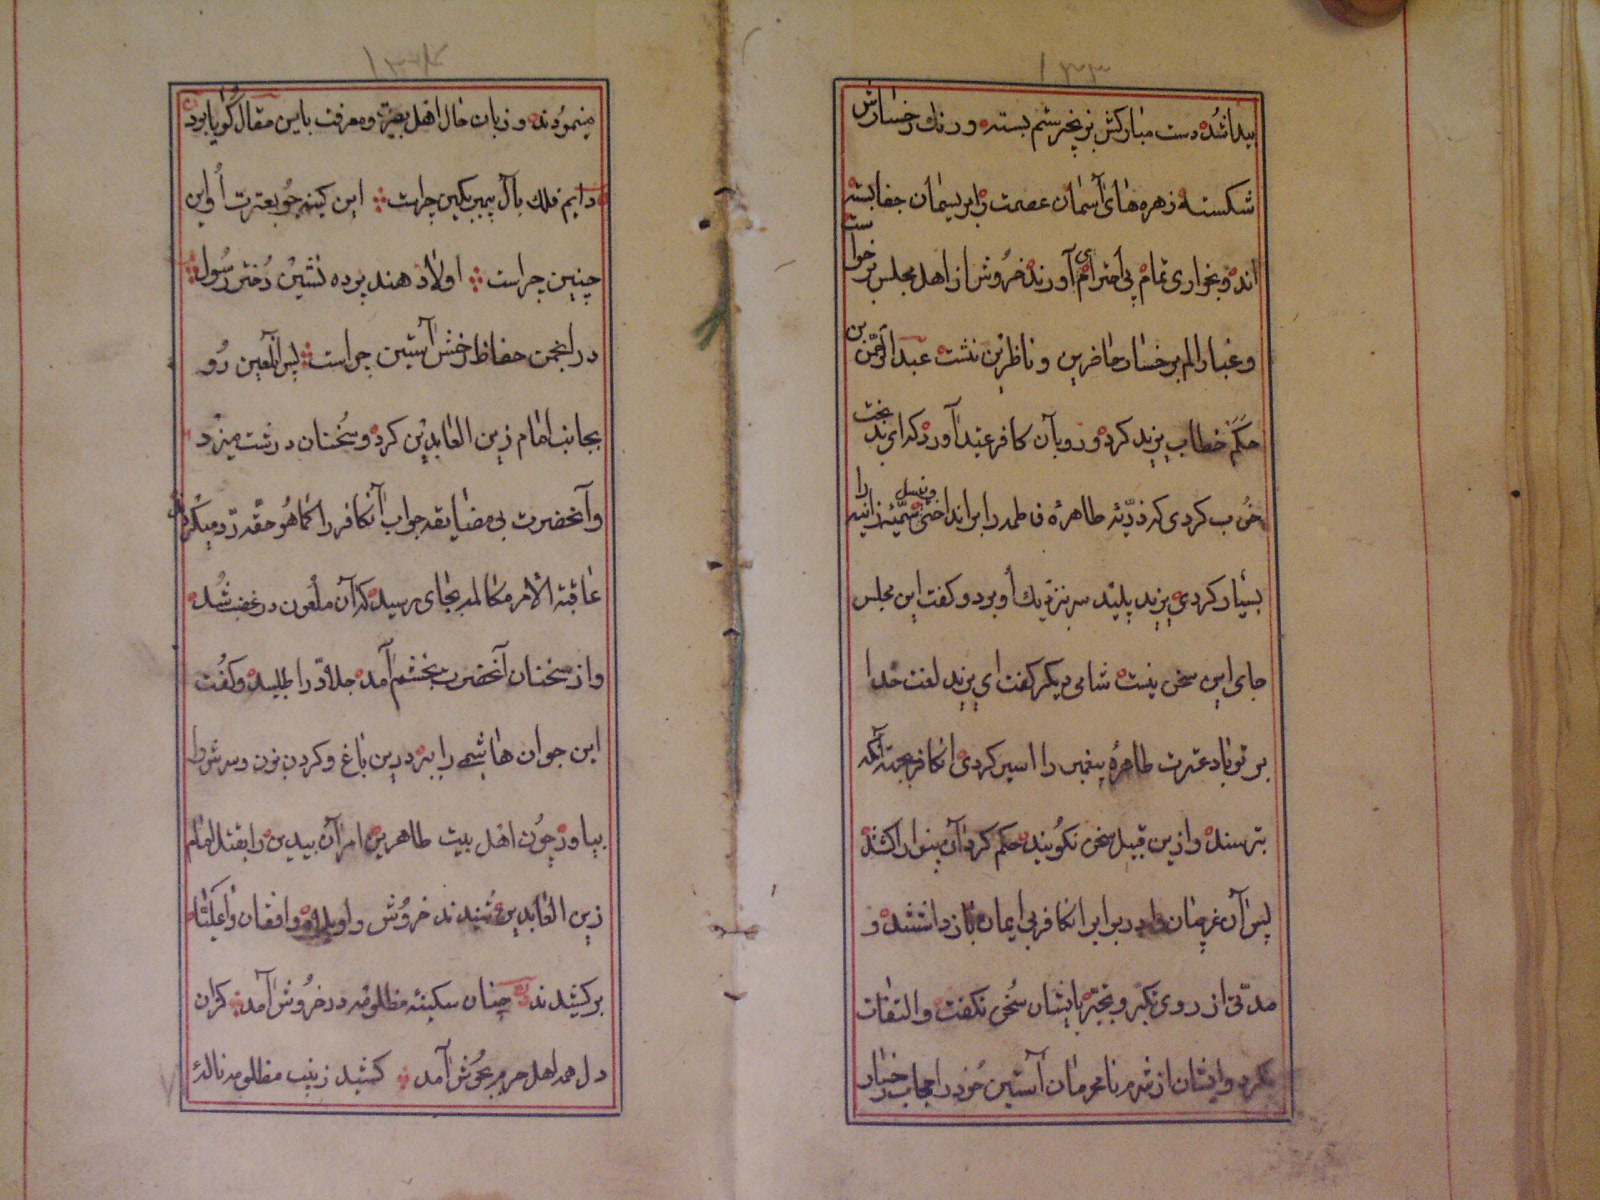 ۱۳۳
پیدا شده دست مبارکش بزنجیر ستم بسته و رنك رخسارش
شکسته زهره های آسمان عصمت را بریسمان جفا بسته
اند و بخواری تمام بی احترامی آورند خروش از اهل مجلس برخواست
و غبار الم بر رخسار حاضرین و ناظرین نشت عبدالرحمن بن
حکم خطاب بیزید کرده و رو بآن کافر عنید آورد که ای بدبخت
خوب کردی که ذریّهٔ طاهرهٔ فاطمه را برانداختی و نسل سمیّهٔ زانیه را
بسیار کردی یزید پلید سر بنزدیك او برد و کفت این مجلس
جای این سخن نیست شامی دیکر کفت ای یزید لعنت خدا
بر تو باد عترت طاهرهٔ پیغمبر را اسیر کردی انکافر بجهة آنکه
بترسند و ازین قبیل سخن نکویند حکم کرد آن بینوا را کشتند
پس آن غریبان را در برابر انکافر بی ایمان باز داشتند و
مدتی از روی تکبّر و تجبّر بایشان سُخن نکفت و التفات
نکرد و ایشان از شرم نامحرمان آستین خود را حجاب رخسار
۱۳۴
مینمودند و زبان حال اهل بصیرت و معرفت باین مقال کویا بود
دایم فلك بآل پیمبر بکین چراست این کینه جو بعترت او این
چنین چراست اولاد هند پرده نشین دُختر رسُول
در انجمن حفاظ رخش آستین چراست پس آنلعین رُو
بجانب امام زین العابدین کرد و سُخنان درشت میزد
و آنحضرت بی مضایقه جواب آنکافر را کما هُو حقّه ردّ میکرد
عاقبة الأمر مکالمه بجای رسید که آن ملعُون در غضب شُد
و از سخنان آنحضرت بخشم آمد جلّاد را طلبید و کفُت
این جوان هاشمی را ببر درین باغ و کردن بزن و سرش را
بیاور چُون اهل بیت طاهرین امر آن بیدین را بقتل امام
زین العابدین شنیدند خروُش واویلاه و افغان واعلیّاه
برکشیدند چنان سکینهٔ مظلومه در خرُوش آمد کزان
دل همه اهل حرم بجُوش آمد کشید زینب مظلومه نالهٔ